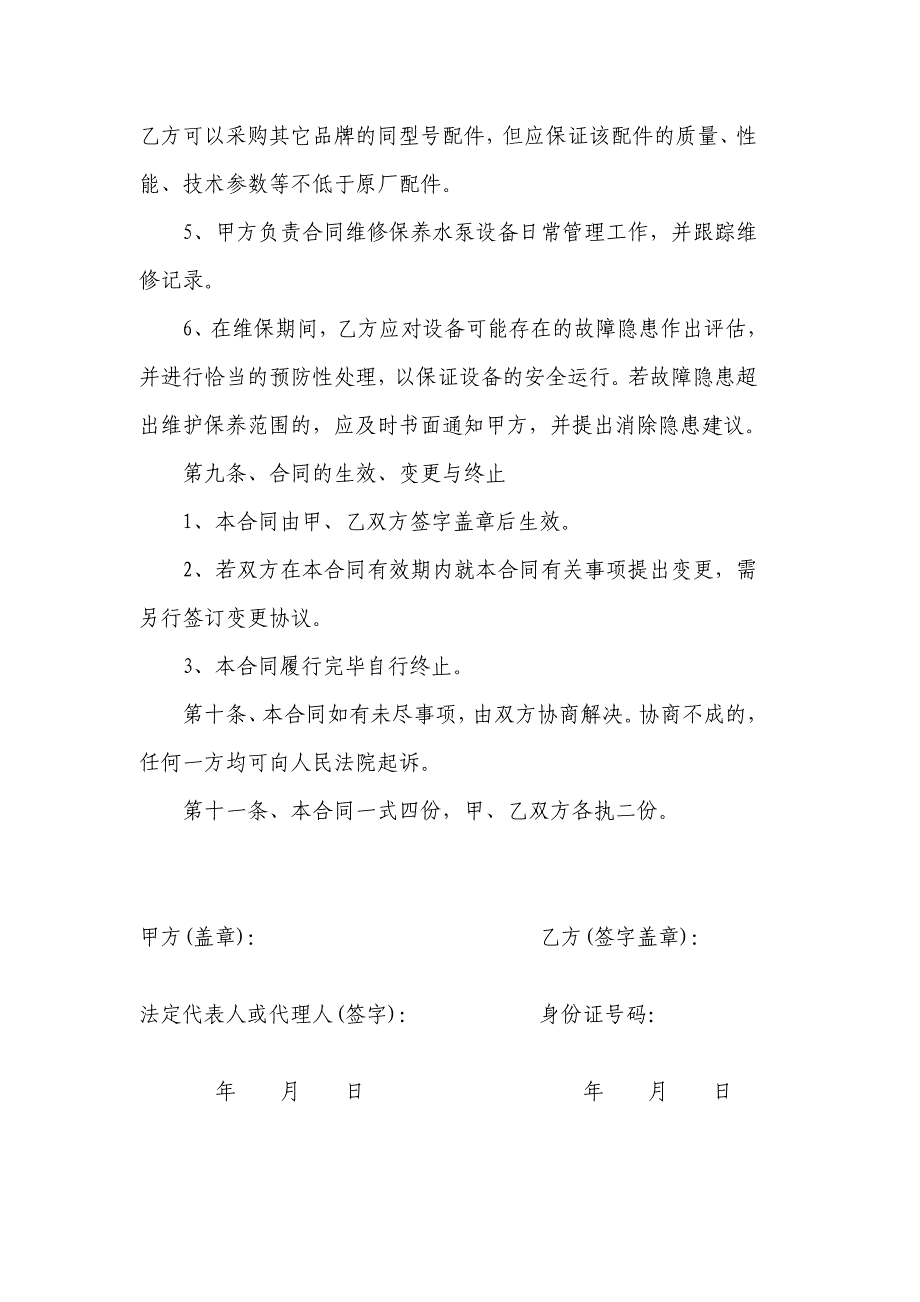 乙方可以采购其它品牌的同型号配件，但应保证该配件的质量、性
能、技术参数等不低于原厂配件。
5、甲方负责合同维修保养水泵设备日常管理工作，并跟踪维
修记录。
6、在维保期间，乙方应对设备可能存在的故障隐患作出评估，
并进行恰当的预防性处理，以保证设备的安全运行。若故障隐患超
出维护保养范围的，应及时书面通知甲方，并提出消除隐患建议。
第九条、合同的生效、变更与终止
1、本合同由甲、乙双方签字盖章后生效。
2、若双方在本合同有效期内就本合同有关事项提出变更，需
另行签订变更协议。
3、本合同履行完毕自行终止。
第十条、本合同如有未尽事项，由双方协商解决。协商不成的，
任何一方均可向人民法院起诉。
第十一条、本合同一式四份，甲、乙双方各执二份。
甲方(盖章)： 乙方(签字盖章)：
法定代表人或代理人(签字)： 身份证号码：
年 月 日 年 月 日